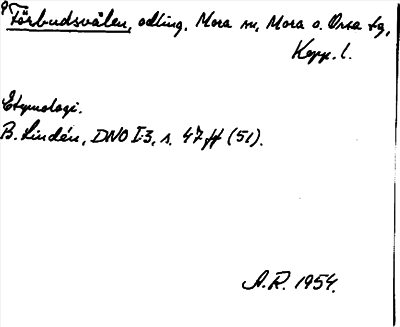 Förbudsvålen, odling. Mora sn, Mora o. Orsa tg,
Kopp. l.
Etymologi.
B. Lindén, DNO I:3, s. 47 ff (51).
A.R. 1954.